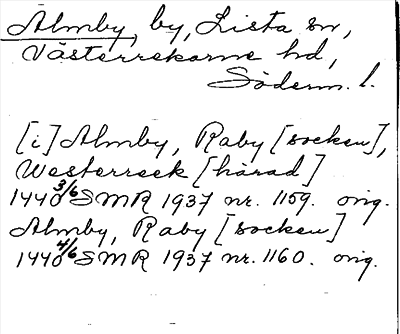 Almby, by, Lista sn,
Västerrekarne hd,
Söderm. l.
[i] Almby, Raby [socken],
Westerreek [härad]
1440 3/6 SMR 1937 nr. 1159. orig.
Almby, Raby [socken]
1440 4/6 SMR 1937 nr. 1160. orig.